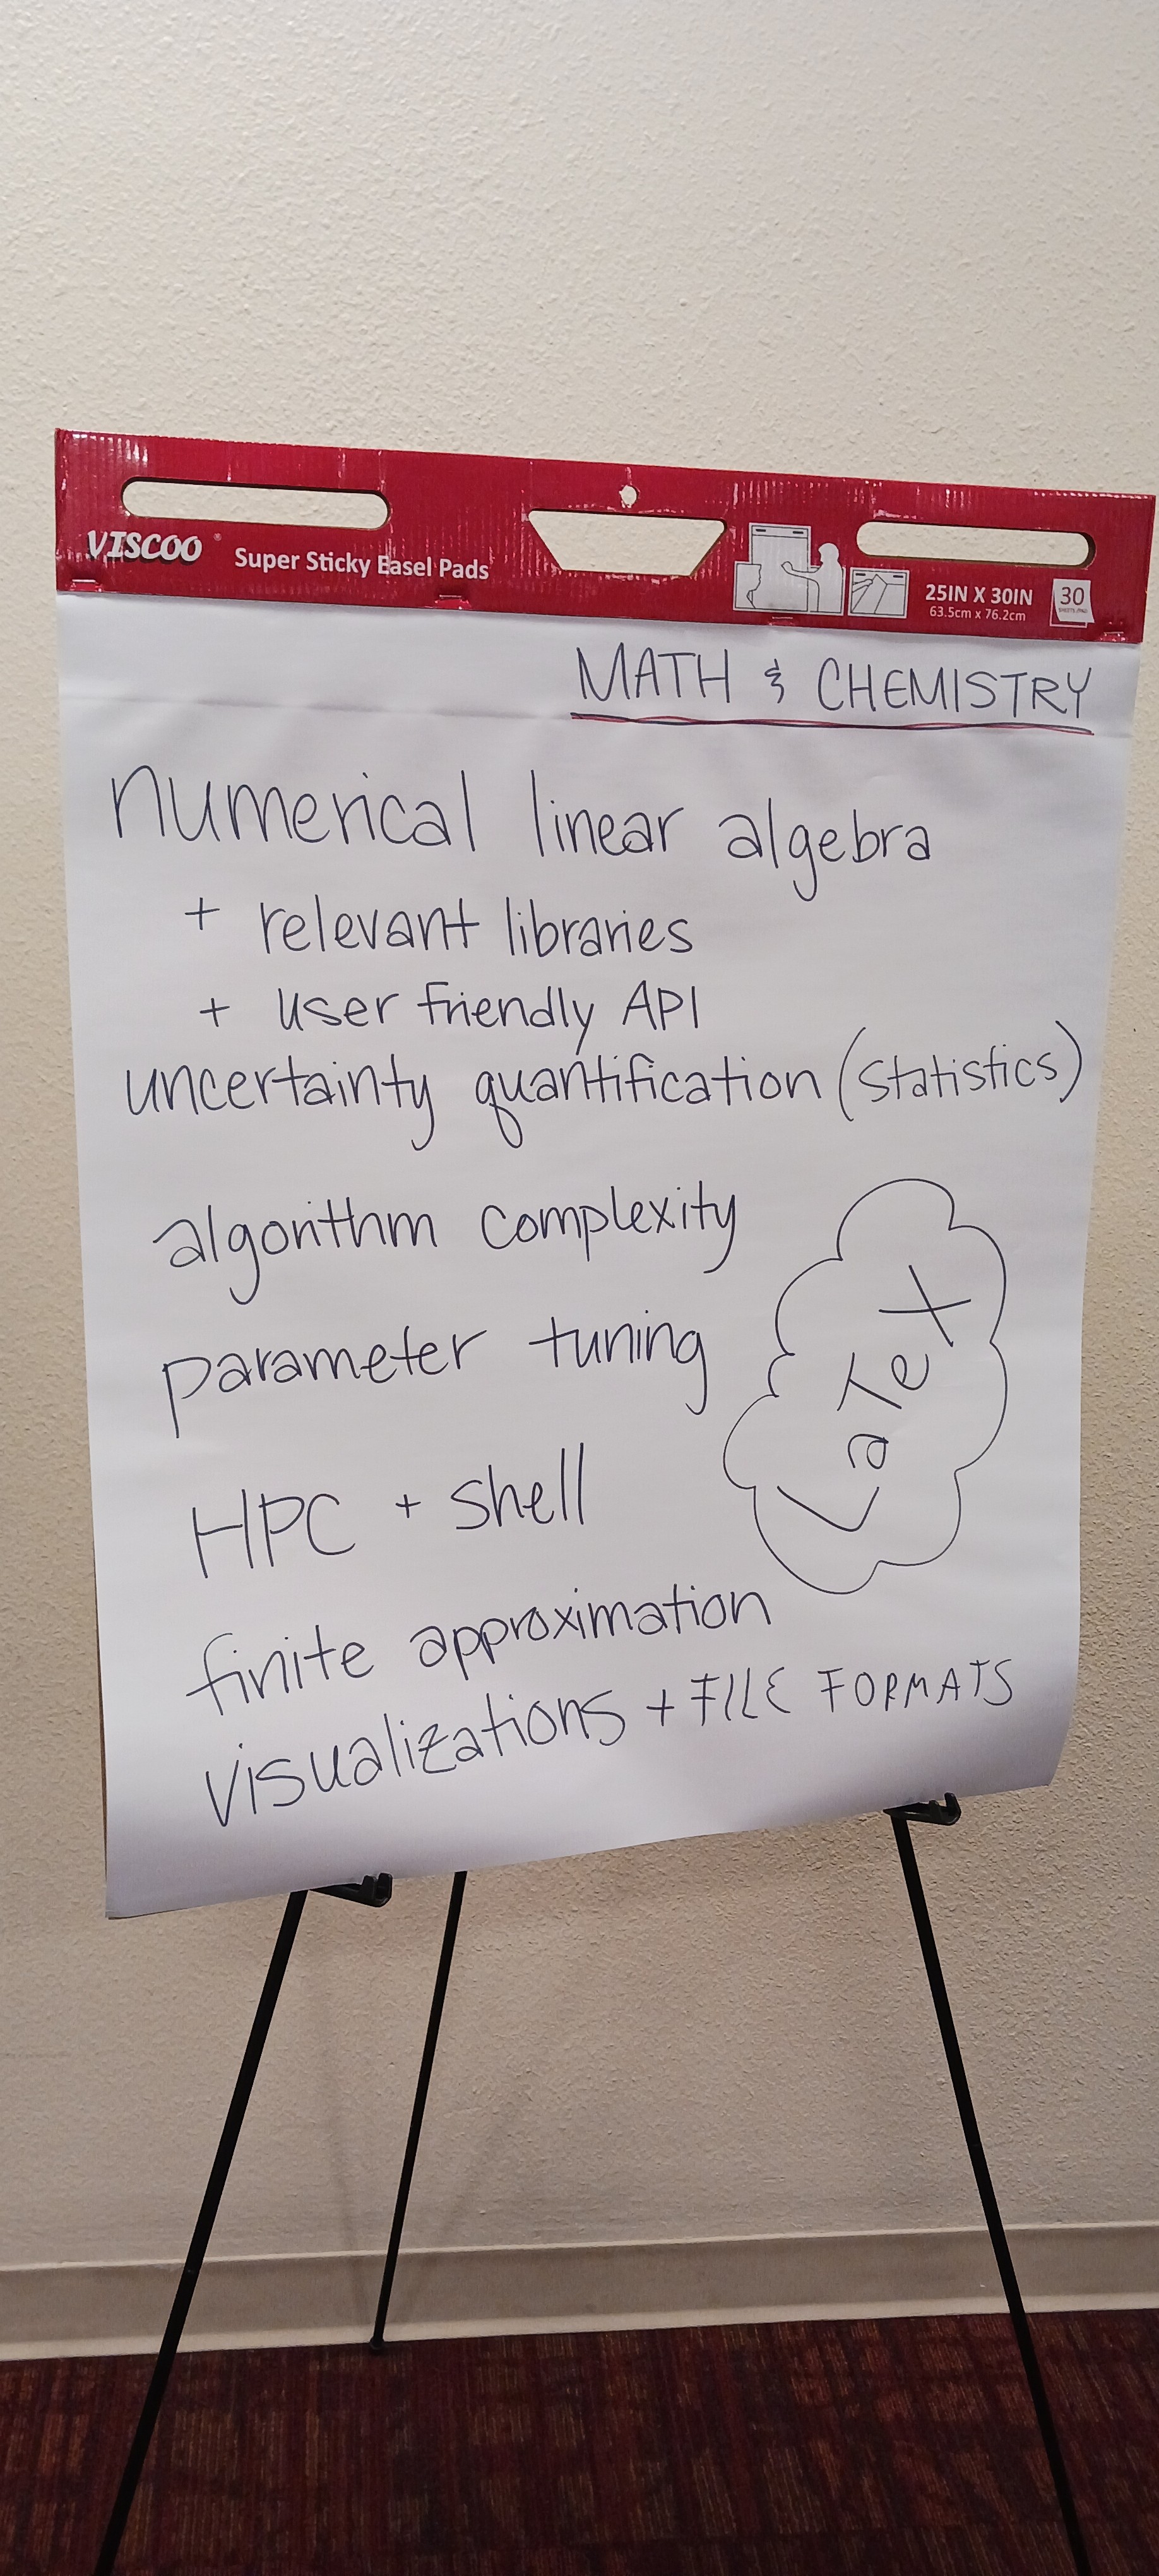 VISCOO® Super Sticky Easel Pads
25IN X 30IN
63.5cm x 76.2cm
30
MATH & CHEMISTRY
numerical linear algebra
+ relevant libraries
+ user friendly API
uncertainty quantification (statistics)
algorithm complexity
parameter tuning
LaTeX
HPC + shell
finite approximation
visualizations + FILE FORMATS